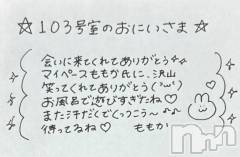 ☆103号室のおにいさま☆
会いに来てくれてありがとう♡
マイペースももか氏に、沢山
笑ってくれてありがとう(´ω`)
お風呂で遊びすぎたね♡
また汗だくでくっつこう〜♪
待ってるね♡ ももか